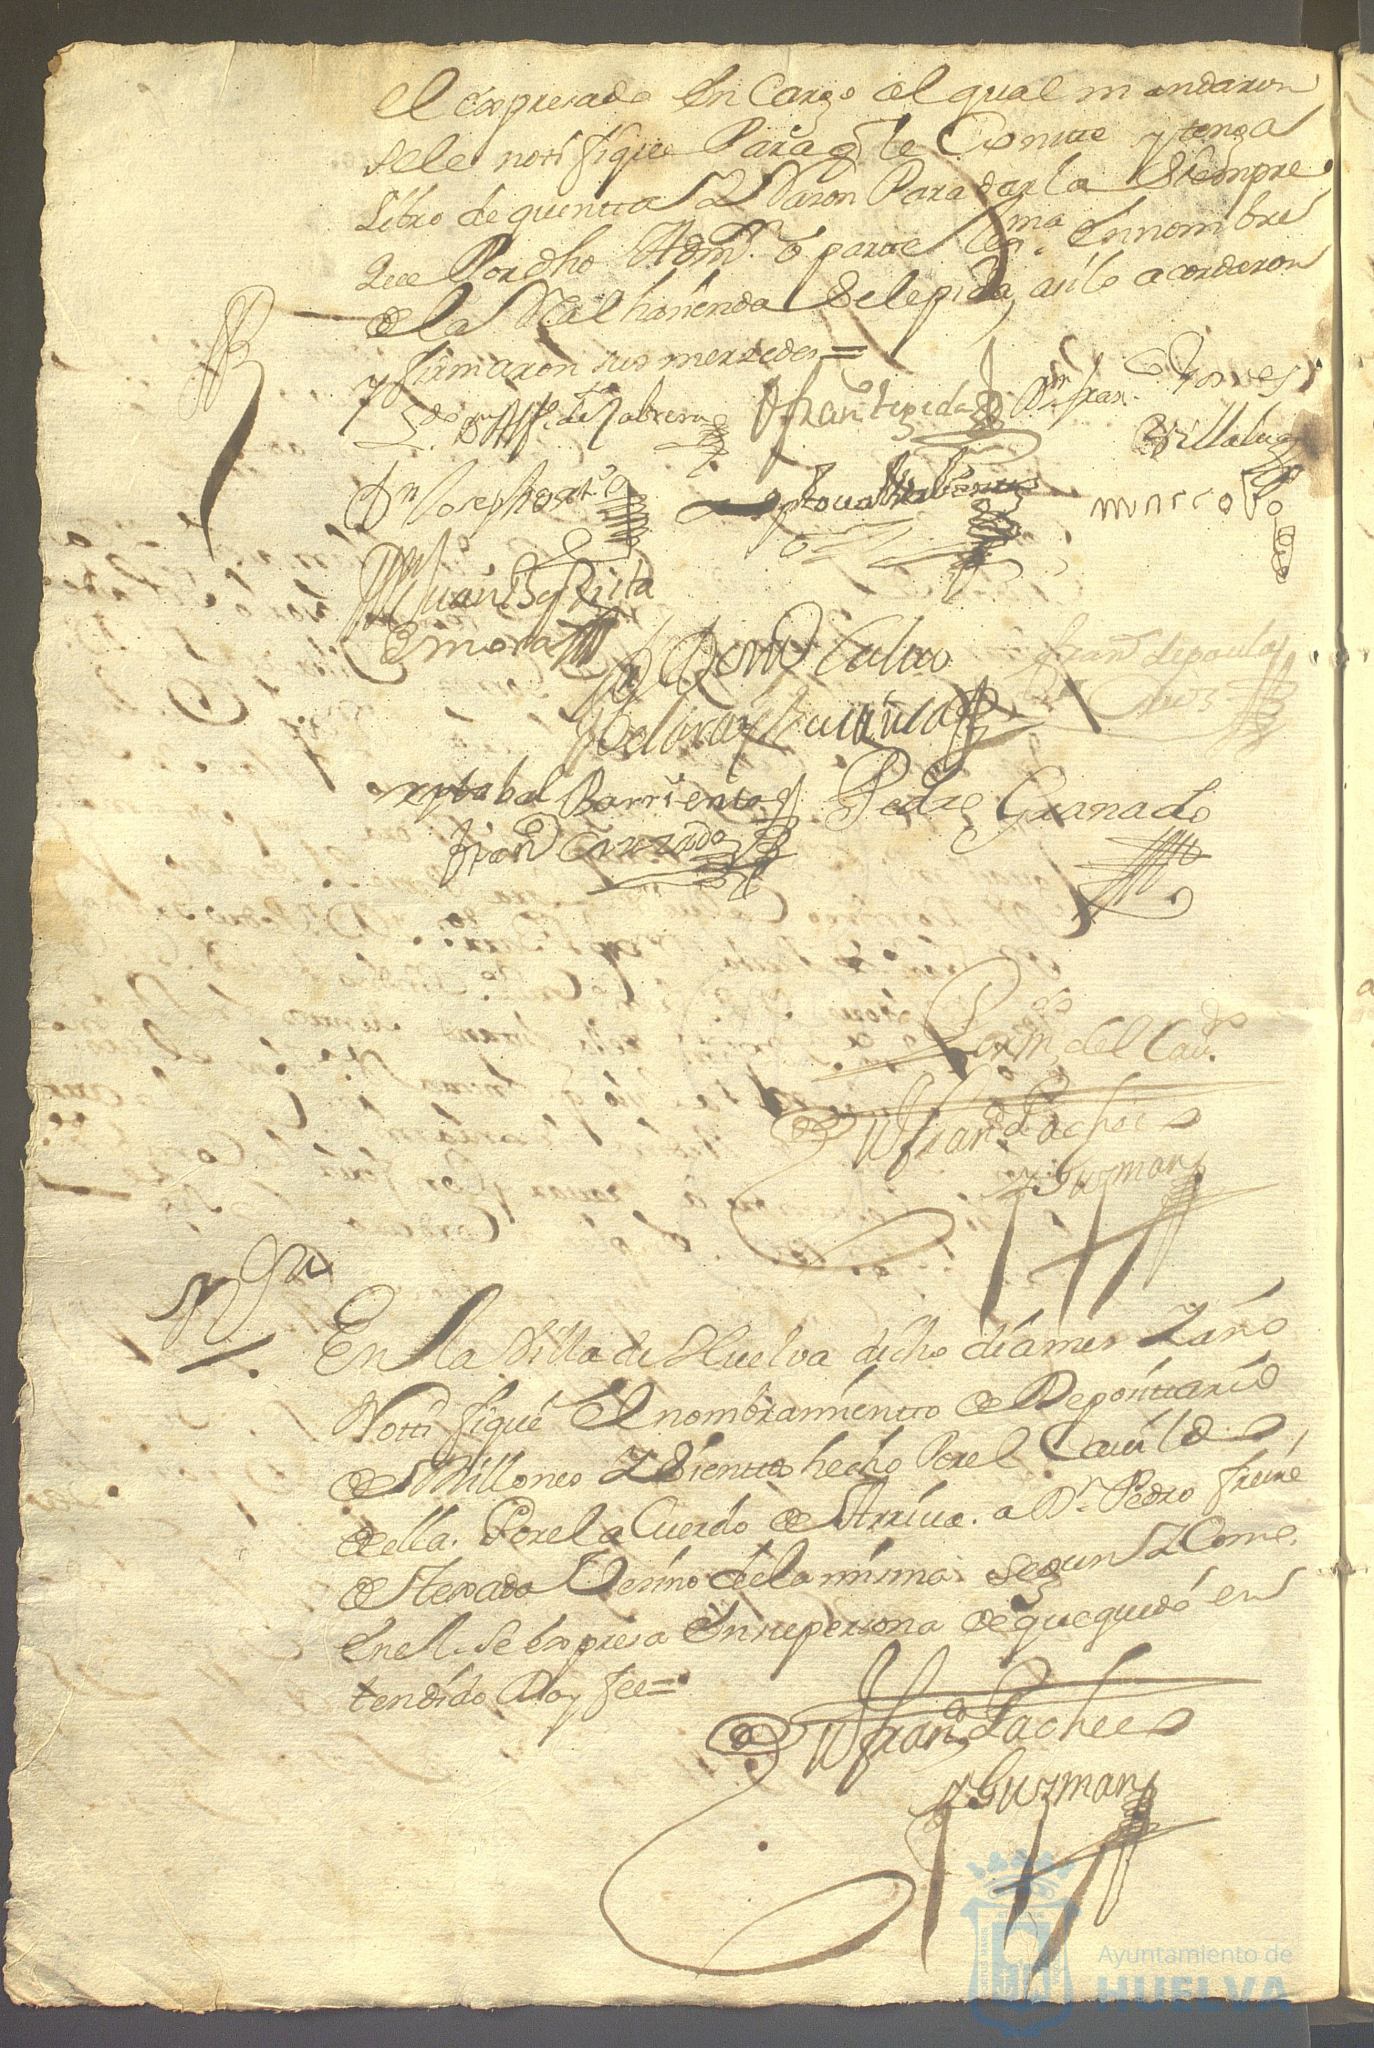 el expresado En Cargo el qual mandaron
sele notifique Para q̃ le Conste y tenga
Libro de quentta y Razon Para darla Siempre
que Por dho Admr. o parte lexma. En nombre
de la Real hazienda Sele pida asi lo acordaron
y firmaron sus mersedes =
Ldo Dn Alfo. de Cabrera
Dn fran.
Villalua
Dn Joseph
Marcos
Juan Bapttista
de mora
Calvo
fran.co de paula
Xptobal Barriento
Pedro Granado
franco Cruzado
Por mdo. del Cavdo.
franco Pacheco
y Guzman
En la Villa de Huelva dicho dia mes y año
Nottifiqué El nombramientto de Deposittario
de Millones y Sientos hecho Por el Cavildo
de ella. Por el aCuerdo de Arriva. a Dn. Pedro freire
de texada Vesino de la misma. segun y Como.
En el. se Expresa En su persona de que quedó en
tendido Doy fee =
franco Pacheco
y Guzman
Ayuntamiento de
HUELVA